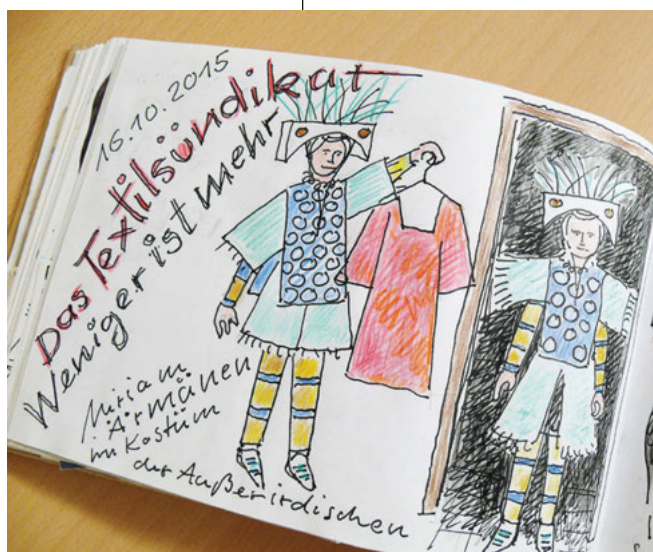 16.10.2015
Das Textilsündikat
Weniger ist mehr
Miriam
Ärmänen
im Kostüm
der Außerirdischen